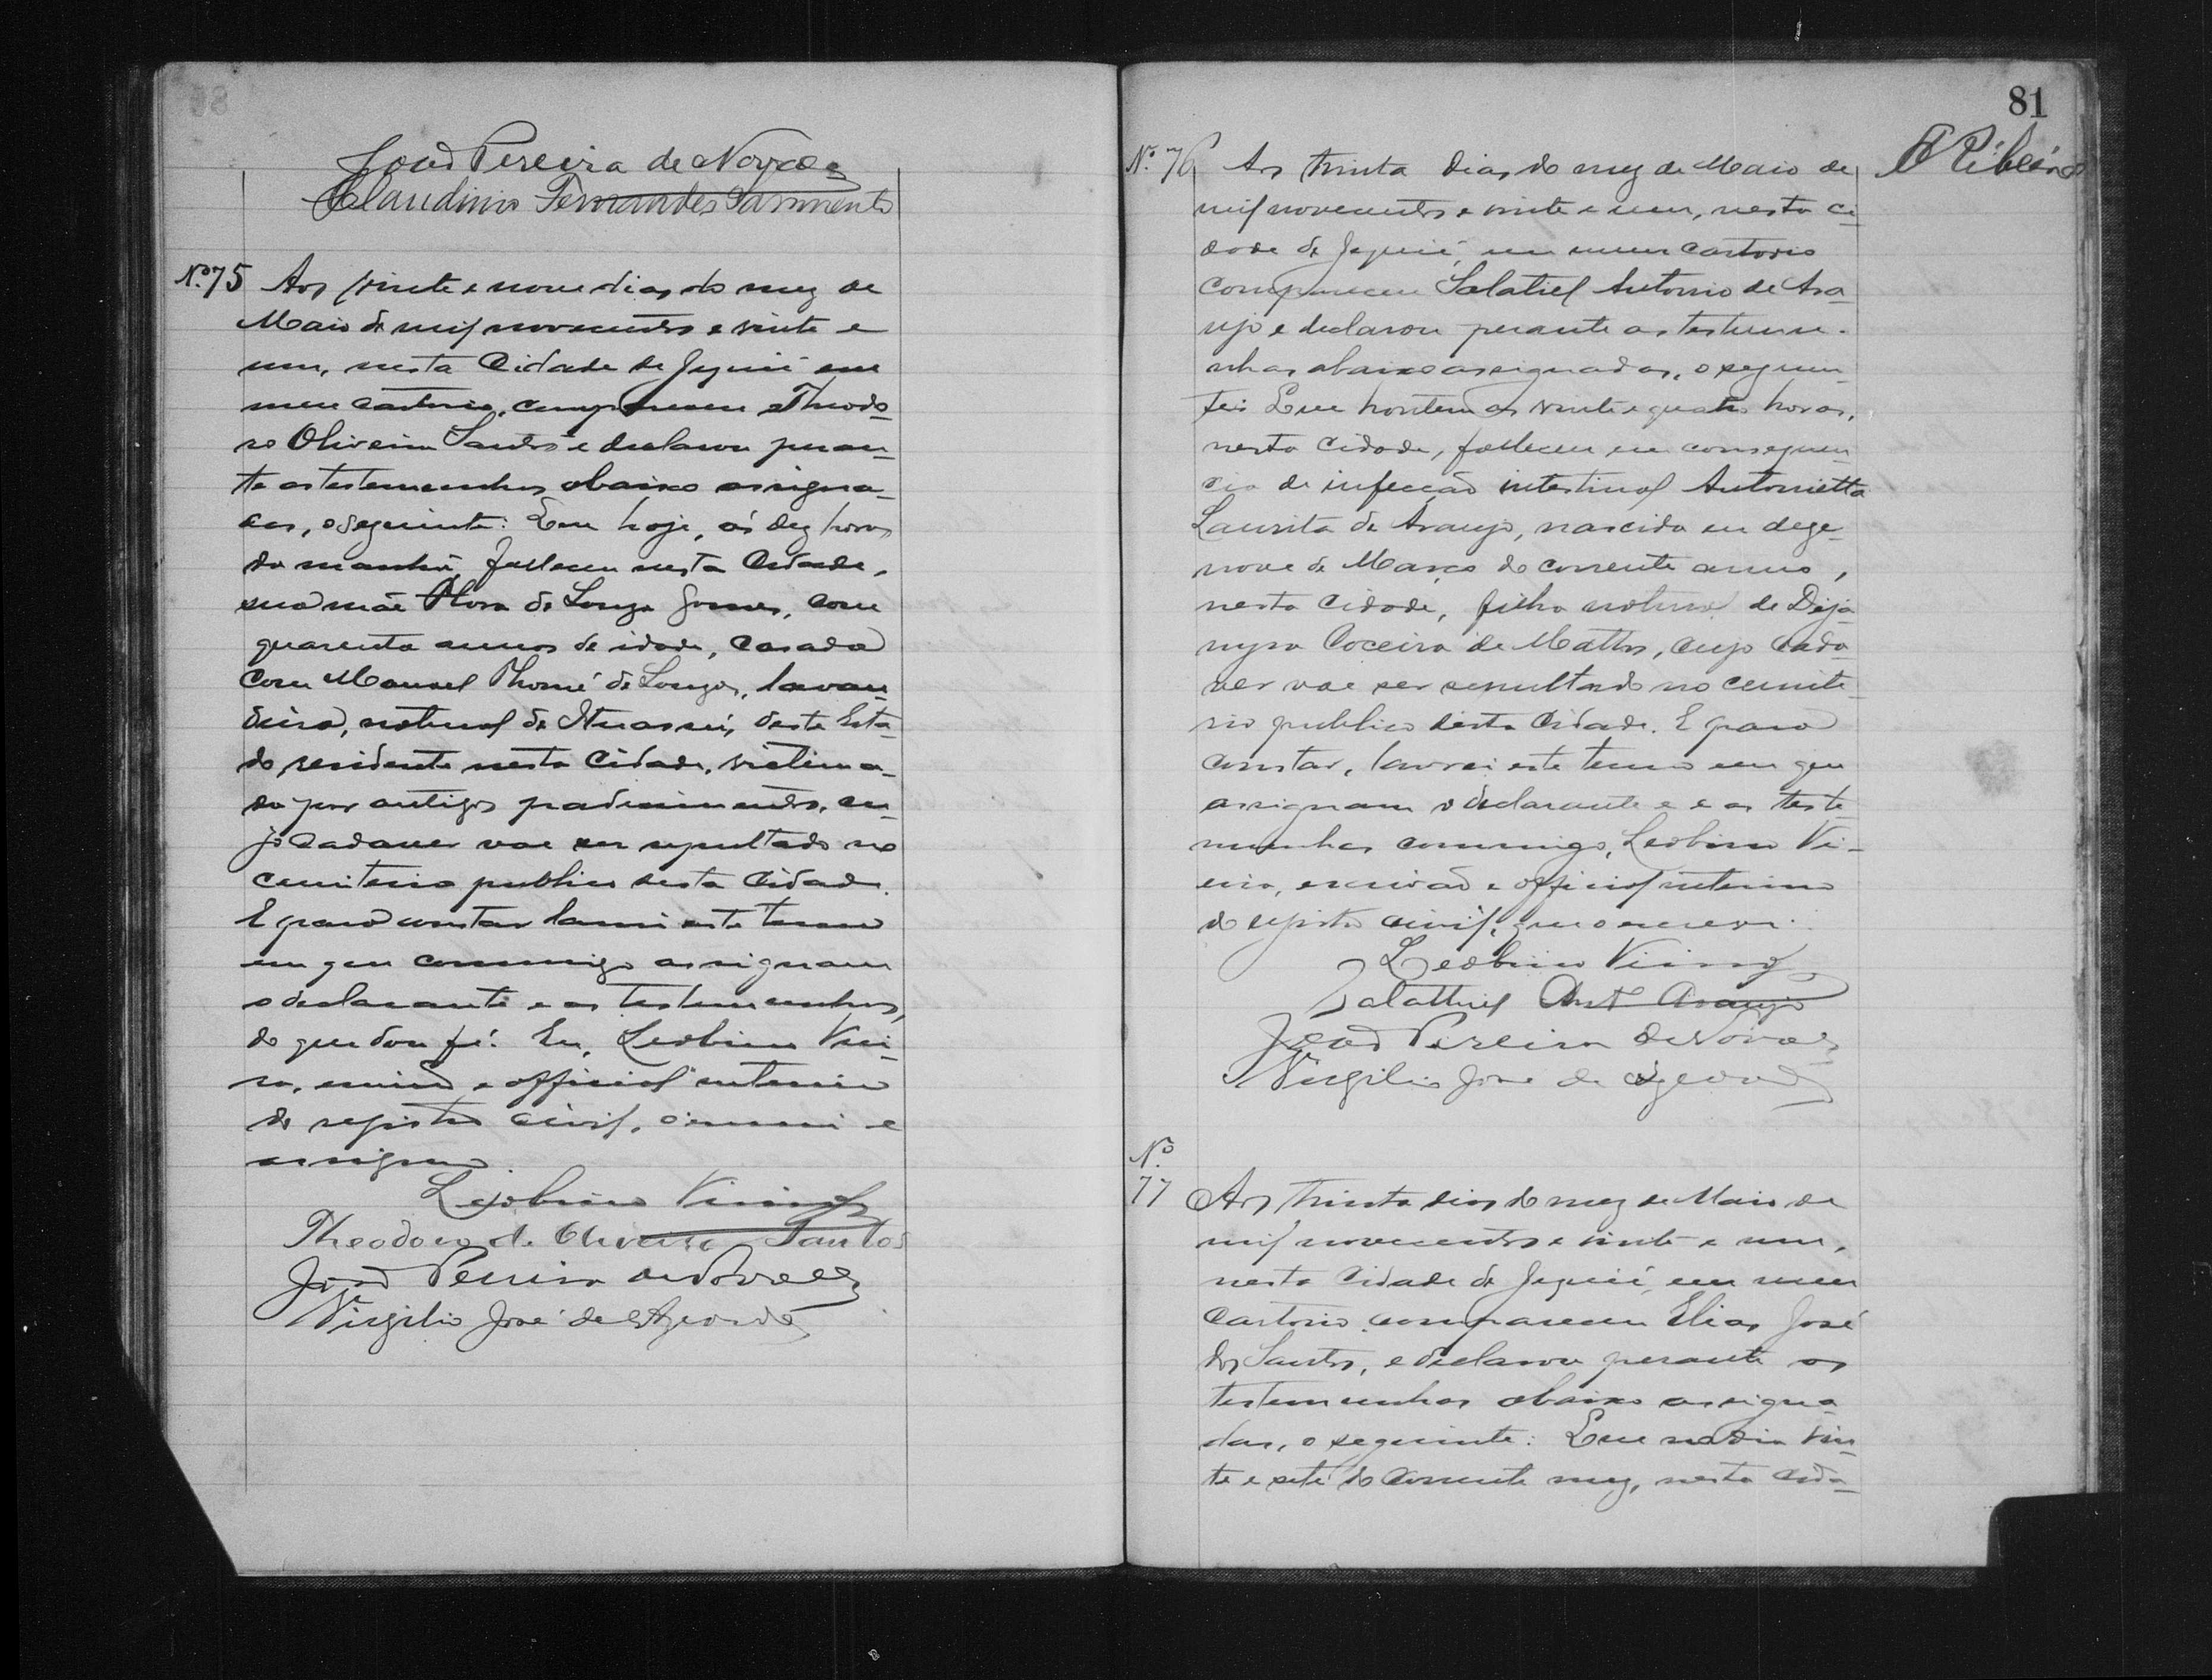 João Pereira de Novaes
Claudino Fernandes Sarmento
Nº 75 Aos vinte e nove dias do mez de
Maio de mil novecentos e vinte e
um, nesta Cidade de Jequié em
meu cartorio, compareceu Theodo-
ro Oliveira Santos e declarou peran-
te as testemunhas abaixo assigna-
das, o seguinte: Que hoje, ás dez horas
da manhã, falleceu nesta Cidade,
sua mãe Flora de Souza Gomes, com
quarenta annos de idade, casada
com Manoel Thomé de Souza, lavan-
deira, natural de Ituassú, deste Esta-
do, residente nesta Cidade, victima-
da por antigos padecimentos, cu-
jo cadaver vae ser sepultado no
cemiterio publico desta Cidade.
E para constar lavrei este termo
em que commigo assignam
o declarante e as testemunhas,
do que dou fé. Eu, Leobino Viei-
ra, escrivão e official interino
do registro civil, o escrevi e
assigno.
Leobino Vieira
Theodoro de Oliveira Santos
João Pereira de Novaes
Virgilio José de Azevedo
81
Ribeiro
Nº 76 Aos trinta dias do mez de Maio de
mil novecentos e vinte e um, nesta ci-
dade de Jequié, em meu cartorio
compareceu Salatiel Antonio de Ara-
ujo e declarou perante as testemu-
nhas abaixo assignadas, o seguin-
te: Que hontem as vinte e quatro horas,
nesta cidade, falleceu em consequen-
cia de infecção intestinal Antonietta
Laurita de Araujo, nascida em deze-
nove de Março do corrente anno,
nesta Cidade, filha natural de Deja-
nyra de Mattos, cujo cada-
ver vae ser sepultado no cemite-
rio publico desta Cidade. E para
constar, lavrei este termo em que
assignam o declarante e e as teste-
munhas commigo, Leobino Vi-
eira, escrivão e official interino
do registro civil, que o escrevi.
Leobino Vieira
Salathiel Ant Araujo
João Pereira de Novaes
Virgilio José de Azevedo
Nº
77 Aos trinta dias do mez de Maio de
mil novecentos e vinte e um,
nesta Cidade de Jequié, em meu
Cartorio, compareceu Elias José
dos Santos, e declarou perante as
testemunhas abaixo assigna-
das, o seguinte: Que no dia vin-
te e sete do corrente mez, nesta Cida-